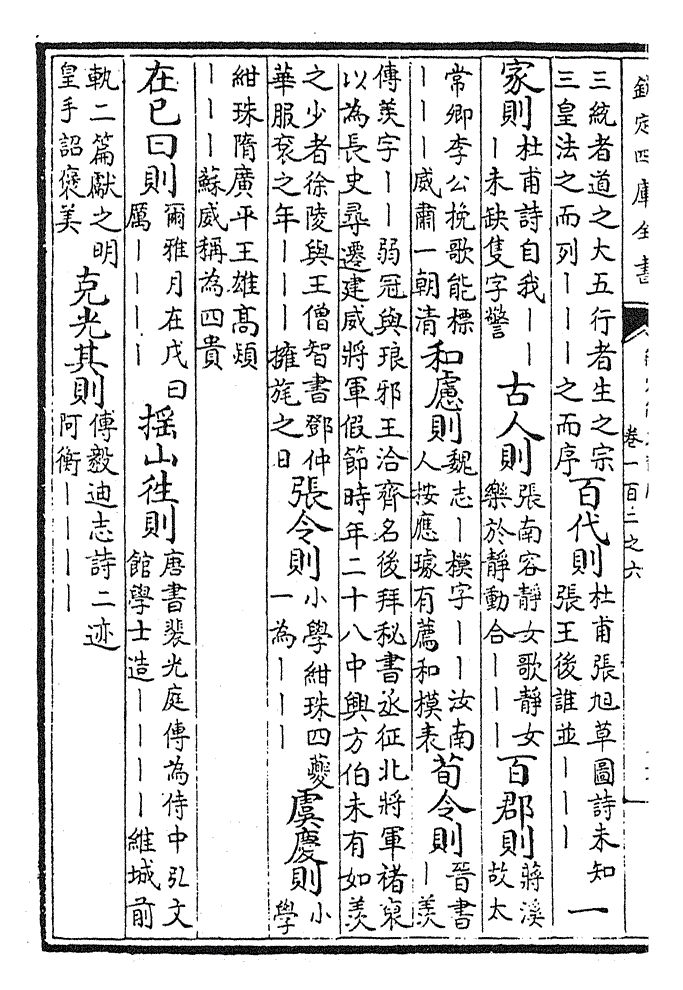 欽定四庫全書
卷一百二之六
三統者道之大五行者生之宗
三皇法之而列丨丨丨之而序
百代則
杜甫張旭草圖詩未知
張王後誰並丨丨丨
一
家則
杜甫詩自我丨丨
丨未缺隻字警
古人則
張南容靜女歌靜女
樂於靜動合丨丨丨
百郡則
蔣溪
故太
常卿李公挽歌能標
丨丨丨威肅一朝清
和慮則
魏志丨模字丨丨汝南
人按應璩有薦和模表
荀令則
晉書
丨羨
傳羨字丨丨弱冠與琅邪王洽齊名後拜秘書丞征北將軍褚裒
以為長史尋遷建威將軍假節時年二十八中興方伯未有如羨
之少者徐陵與王僧智書鄧仲
華服衮之年丨丨丨擁旄之日
張令則
小學紺珠四夔
一為丨丨丨
虞慶則
小
學
紺珠隋廣平王雄高熲
丨丨丨蘇威稱為四貴
在已曰則
爾雅月在戊曰
厲丨丨丨丨
摇山往則
唐書裴光庭傳為侍中弘文
館學士造丨丨丨丨維城前
軌二篇獻之明
皇手詔褒美
克光其則
傅毅迪志詩二迹
阿衡丨丨丨丨